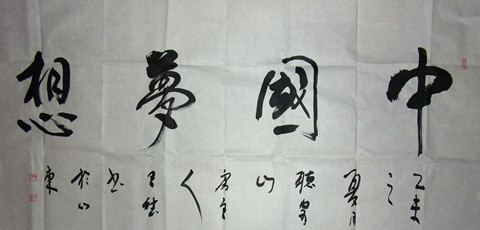 中國夢想
乙未之
夏月
聽
山
房主
人
書
於山
東